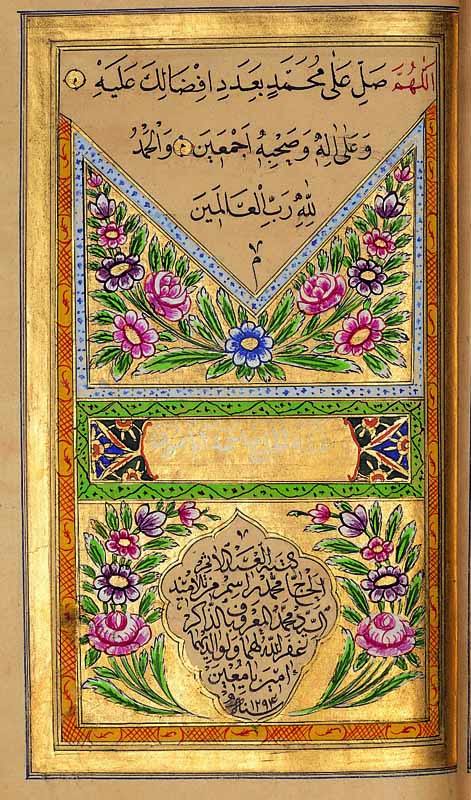 اَللّٰهُمَّ صَلِّ عَلٰى مُحَمَّدٍ بِعَدَدِ اِفْضَالِكَ عَلَيْهِ
وَعَلٰى اٰلِهٖ وَصَحْبِهٖ اَجْمَعِينَ وَالْحَمْدُ
لِلّٰهِ رَبِّ الْعَالَمِينَ
م
كتبه العبد
الحاج محمد راسم من
السيد محمد المعروف بالذاكر
غفر الله لهما ولوالديهما
امين يا معين
١٢٩٤